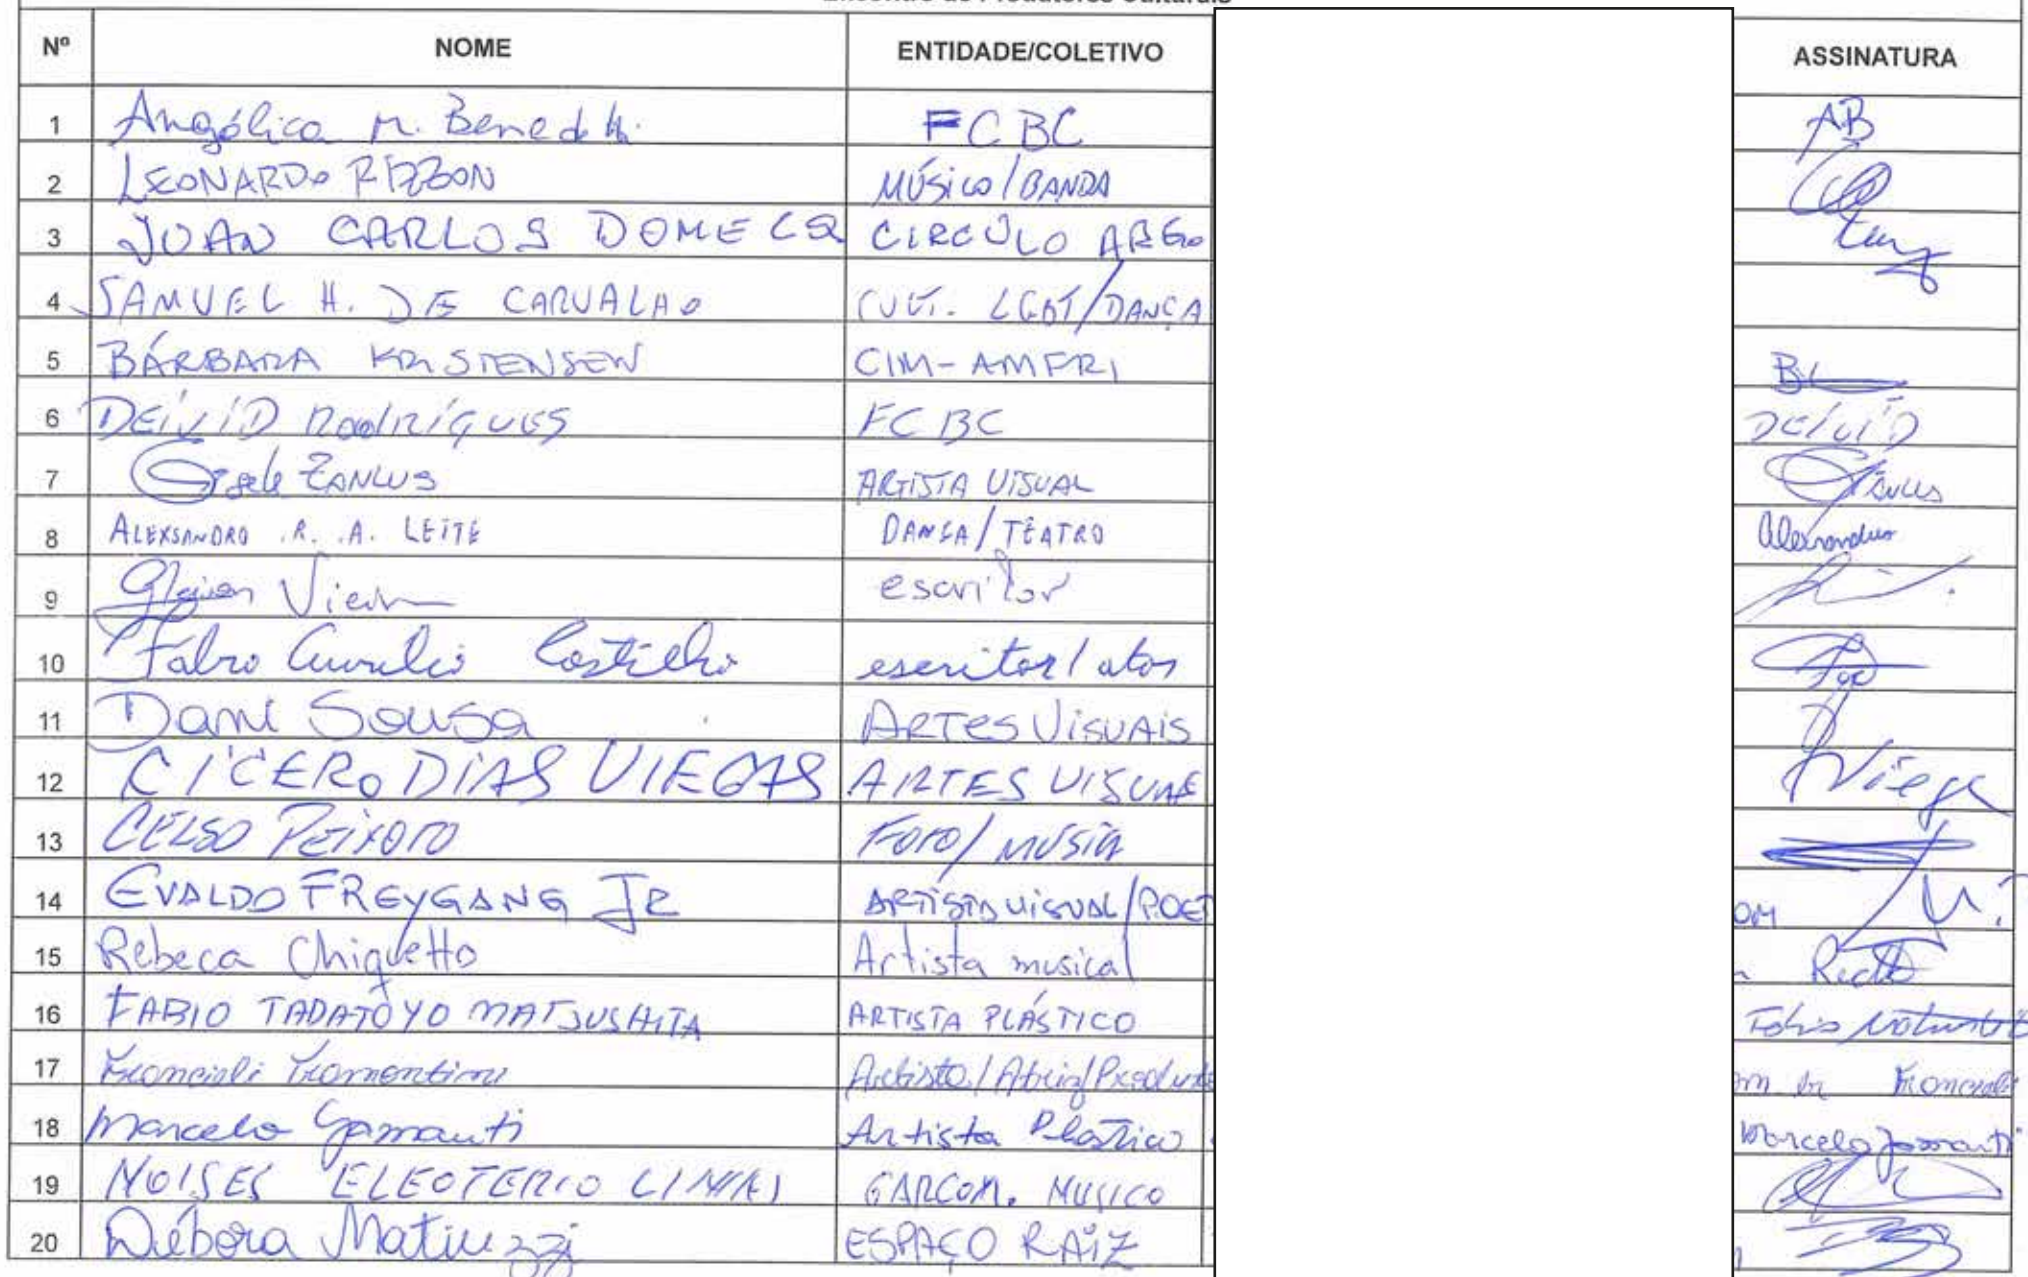 Encontro de Produtores Culturais
Nº NOME ENTIDADE/COLETIVO ASSINATURA
1 Angélica M. Benedetti FCBC AB
2 LEONARDO RIZZON MÚSICO/BANDA
3 JUAN CARLOS DOMECQ CIRCULO ARGO
4 SAMUEL H. DE CARVALHO CULT. LGBT/DANÇA
5 BÁRBARA KRISTENSEN CIM-AMFRI
6 DEIVID RODRIGUES FCBC DEIVID
7 Gisele ZANLUS ARTISTA VISUAL
8 ALEXSANDRO .R. .A. LEITE DANÇA/TEATRO Alexsandro
9 Vieira escritor
10 Fabio Aurelio Castilho escritor/ator
11 Dani Sousa ARTES VISUAIS
12 CÍCERO DIAS VIEGAS ARTES VISUAE Viega
13 CELSO PEIXOTO FOTO/MÚSICA
14 EVALDO FREYGANG JR ARTISTA VISUAL/POET OM
15 Rebeca Chiquetto Artista musical
16 FABIO TADATOYO MATSUSHITA ARTISTA PLÁSTICO Fabio
17 Francieli Tramontini Artista/Atriz/Produto om br Francieli
18 Marcelo Gamauti Artista Plastico Marcelo
19 MOISES ELEOTERIO GARCOM. MUSICO
20 Débora Matiuzzi ESPAÇO RAIZ